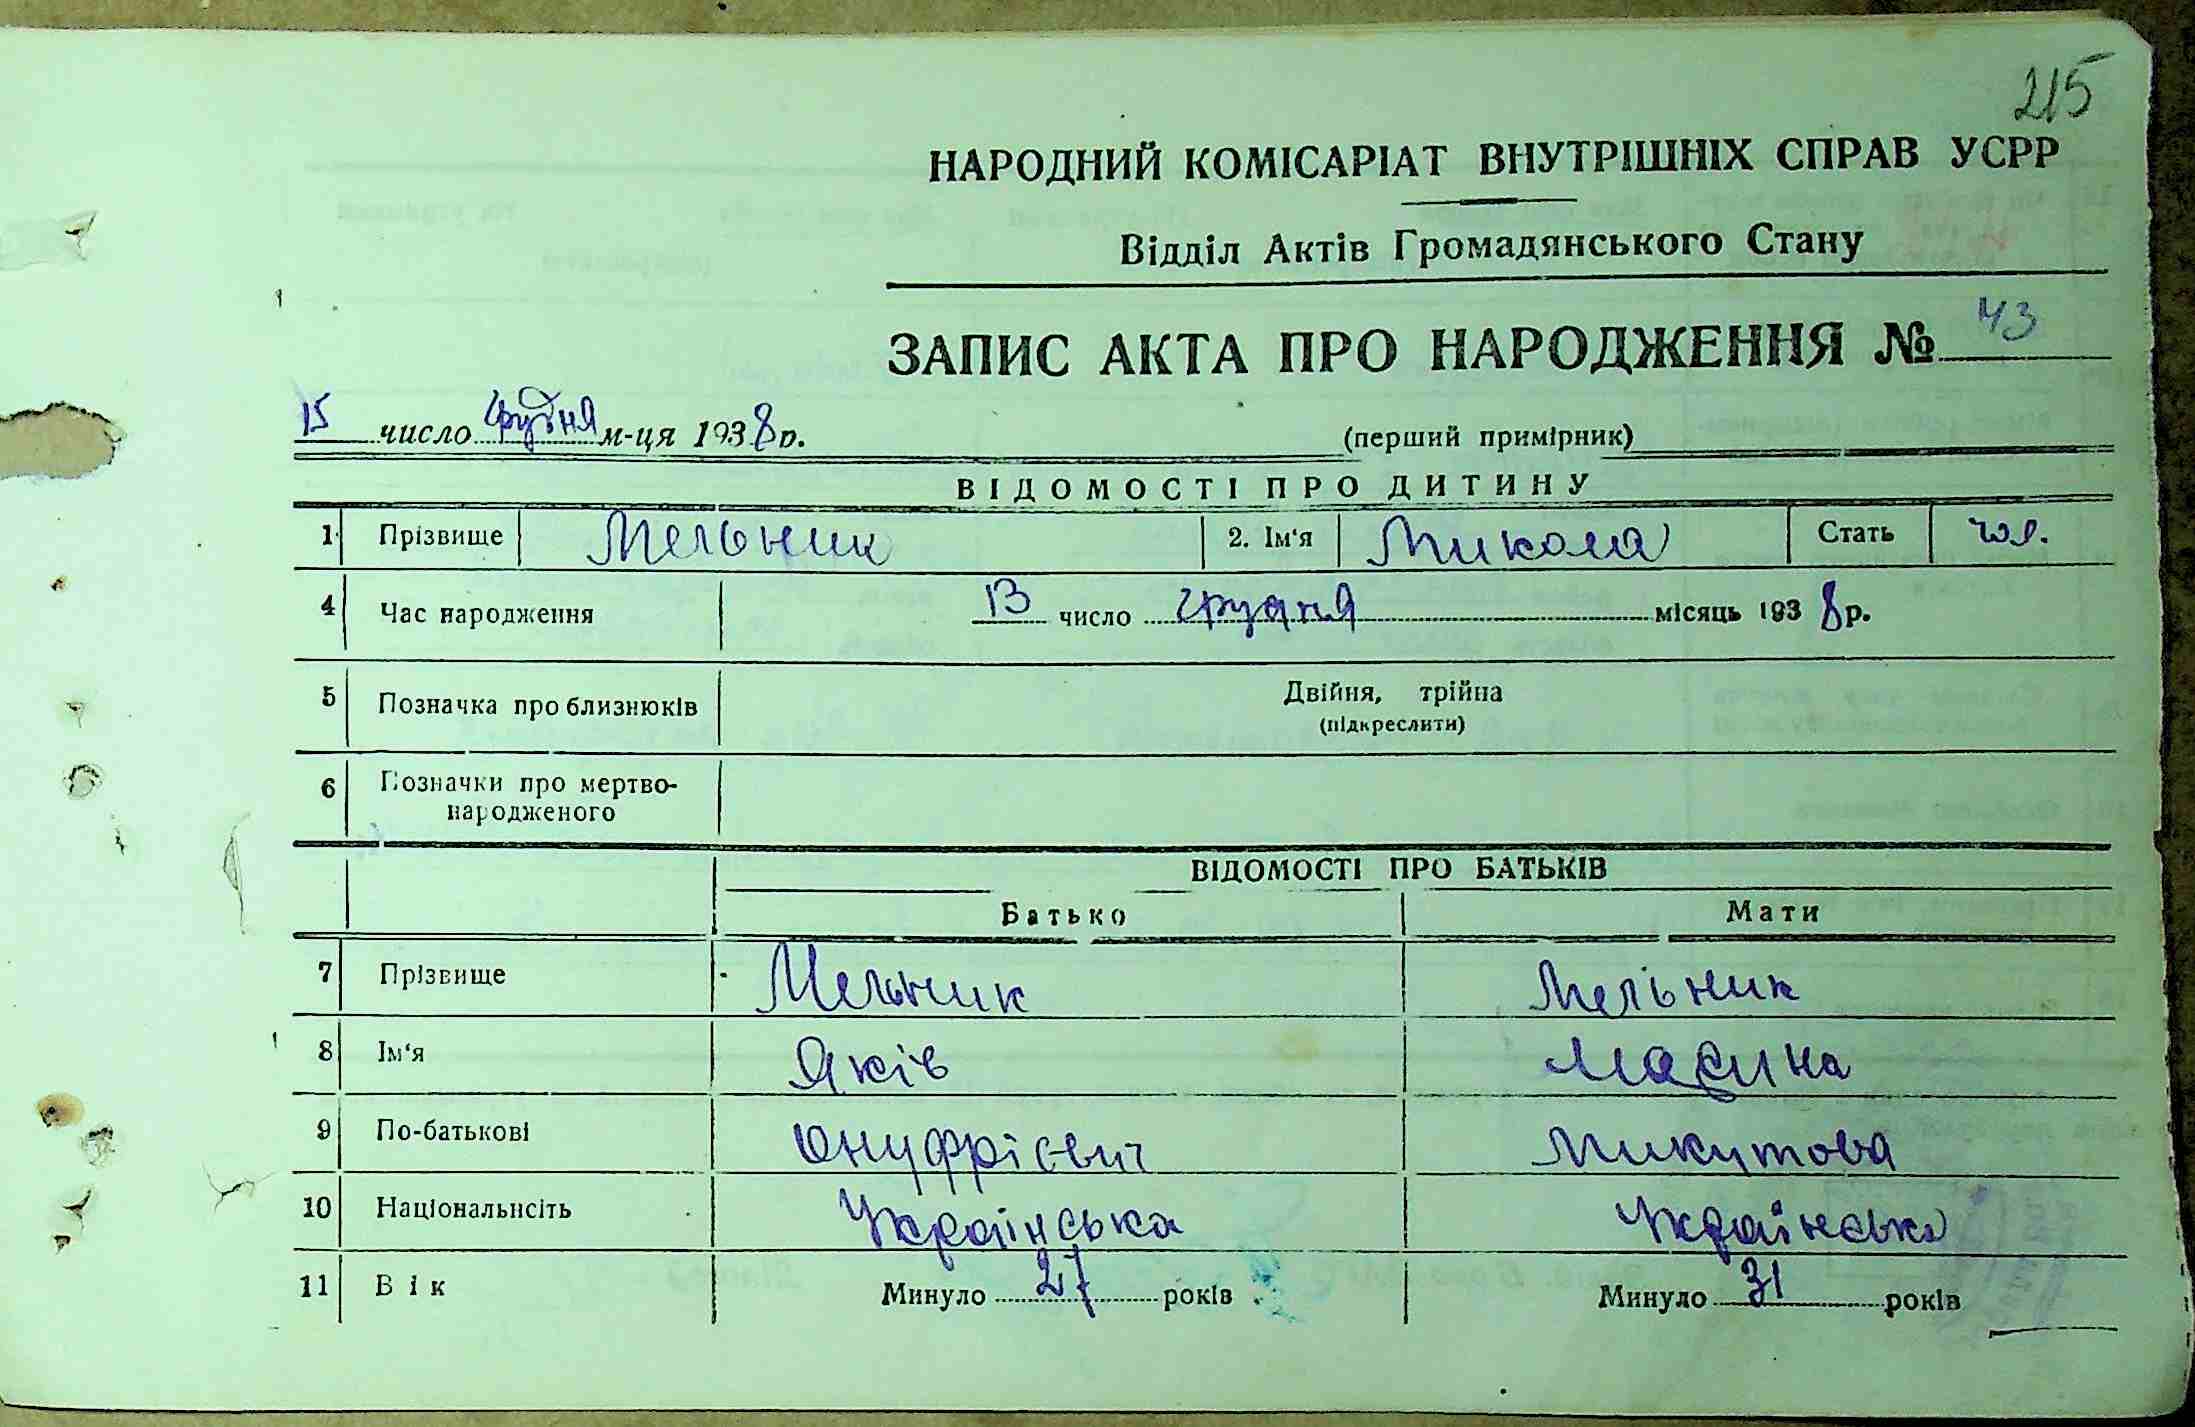 215
НАРОДНИЙ КОМІСАРІАТ ВНУТРІШНІХ СПРАВ УСРР
Відділ Актів Громадянського Стану
ЗАПИС АКТА ПРО НАРОДЖЕННЯ № 43
15 число грудня м-ця 1938 р. (перший примірник)
ВІДОМОСТІ ПРО ДИТИНУ
1 Прізвище Мельник 2. Ім‘я Микола Стать чол.
4 Час народження 13 число грудня місяць 1938 р.
5 Позначка про близнюків Двійня, трійна
(підкреслити)
6 Позначки про мертво-
народженого
ВІДОМОСТІ ПРО БАТЬКІВ
Батько Мати
7 Прізвище Мельник Мельник
8 Ім‘я Яків
9 По-батькові Онуфрієвич Микитова
10 Національнсіть Українська Українська
11 Вік Минуло 27 років Минуло 31 років